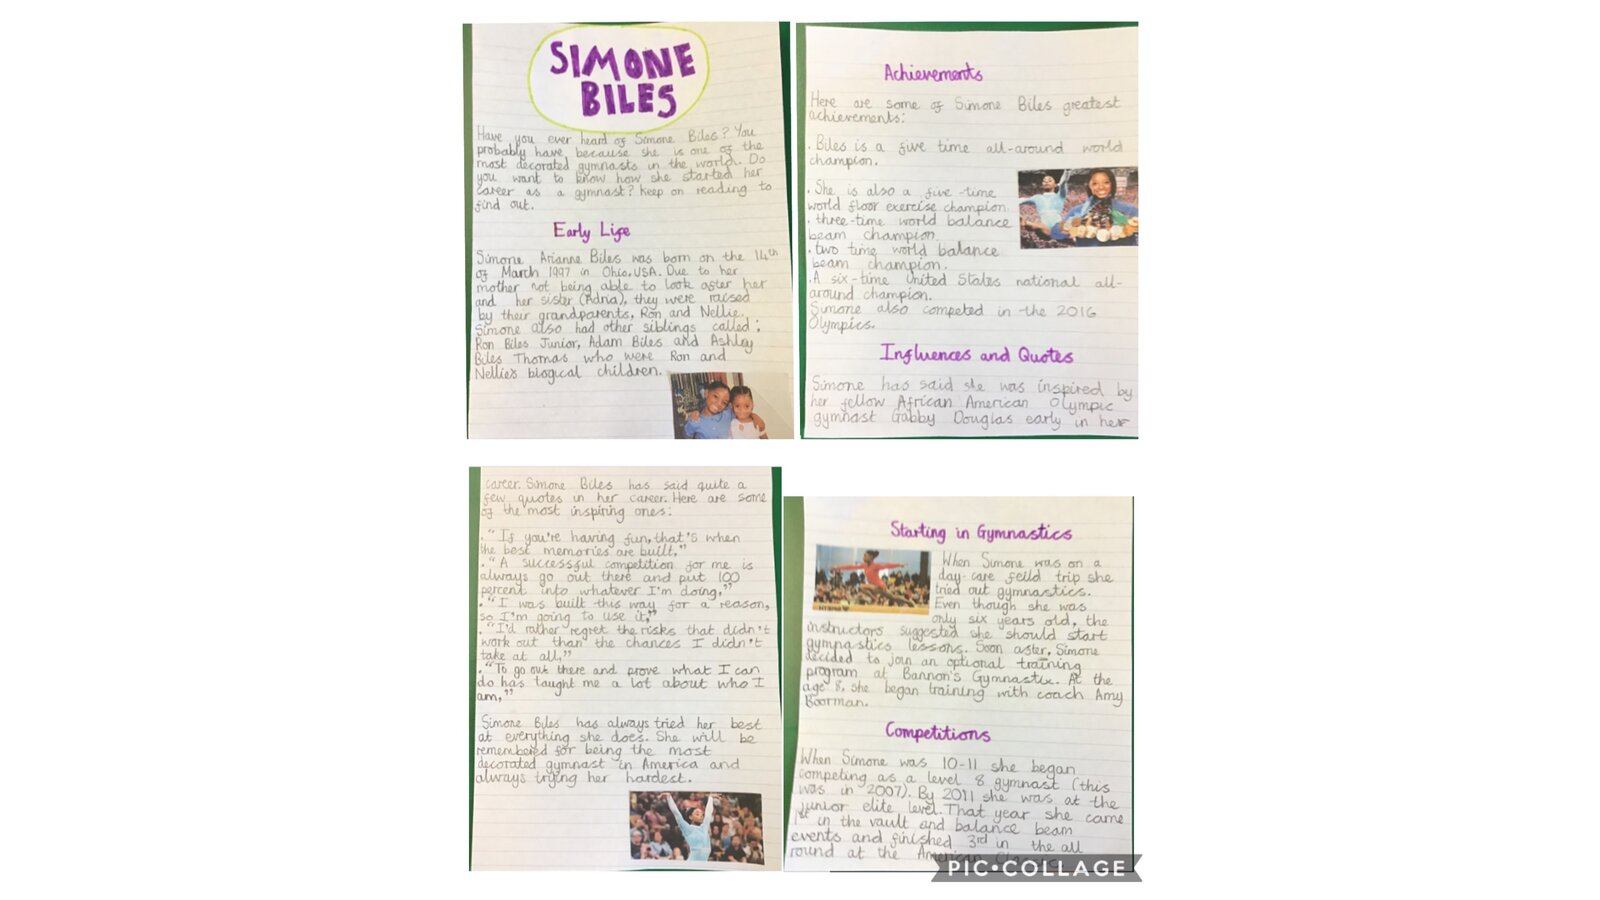 SIMONE
BILES
Have you ever heard of Simone Biles? You
probably have because she is one of the
most decorated gymnasts in the world. Do
you want to know how she started her
career as a gymnast? Keep on reading to
find out.
Early Life
Simone Arianne Biles was born on the 14th
of March 1997 in Ohio.USA. Due to her
mother not being able to look after her
and her sister (Adria), they were raised
by their grandparents, Ron and Nellie.
Simone also had other siblings called:
Ron Biles Junior, Adam Biles and Ashley
Biles Thomas who were Ron and
Nellie's biogical children.
Achievements
Here are some of Simone Biles greatest
achievements:
. Biles is a five time all-around world
champion.
. She is also a five-time
world floor exercise champion.
. three-time world balance
beam champion.
. two time world balance
beam champion.
. A six-time United States national all-
around champion.
Simone also competed in the 2016
Olympics.
Influences and Quotes
Simone has said she was inspired by
her fellow African American Olympic
gymnast Gabby Douglas early in her
career. Simone Biles has said quite a
few quotes in her career. Here are some
of the most inspiring ones:
. "If you're having fun, that's when
the best memories are built,"
. "A successful competition for me is
always go out there and put 100
percent into whatever I'm doing,"
. "I was built this way for a reason,
so I'm going to use it,"
. "I'd rather regret the risks that didn't
work out than the chances I didn't
take at all,"
. "To go out there and prove what I can
do has taught me a lot about who I
am,"
Simone Biles has always tried her best
at everything she does. She will be
remembered for being the most
decorated gymnast in America and
always trying her hardest.
Starting in Gymnastics
When Simone was on a
day-care feild trip she
tried out gymnastics.
Even though she was
only six years old, the
instructors suggested she should start
gymnastics lessons. Soon after, Simone
decided to join an optional training
program at Bannon's Gymnastix. At the
age 8, she began training with coach Amy
Boorman.
Competitions
When Simone was 10-11 she began
competing as a level 8 gymnast (this
was in 2007). By 2011 she was at the
junior elite level. That year she came
1st in the vault and balance beam
events and finished 3rd in the all
round at the American Classic.
PIC•COLLAGE